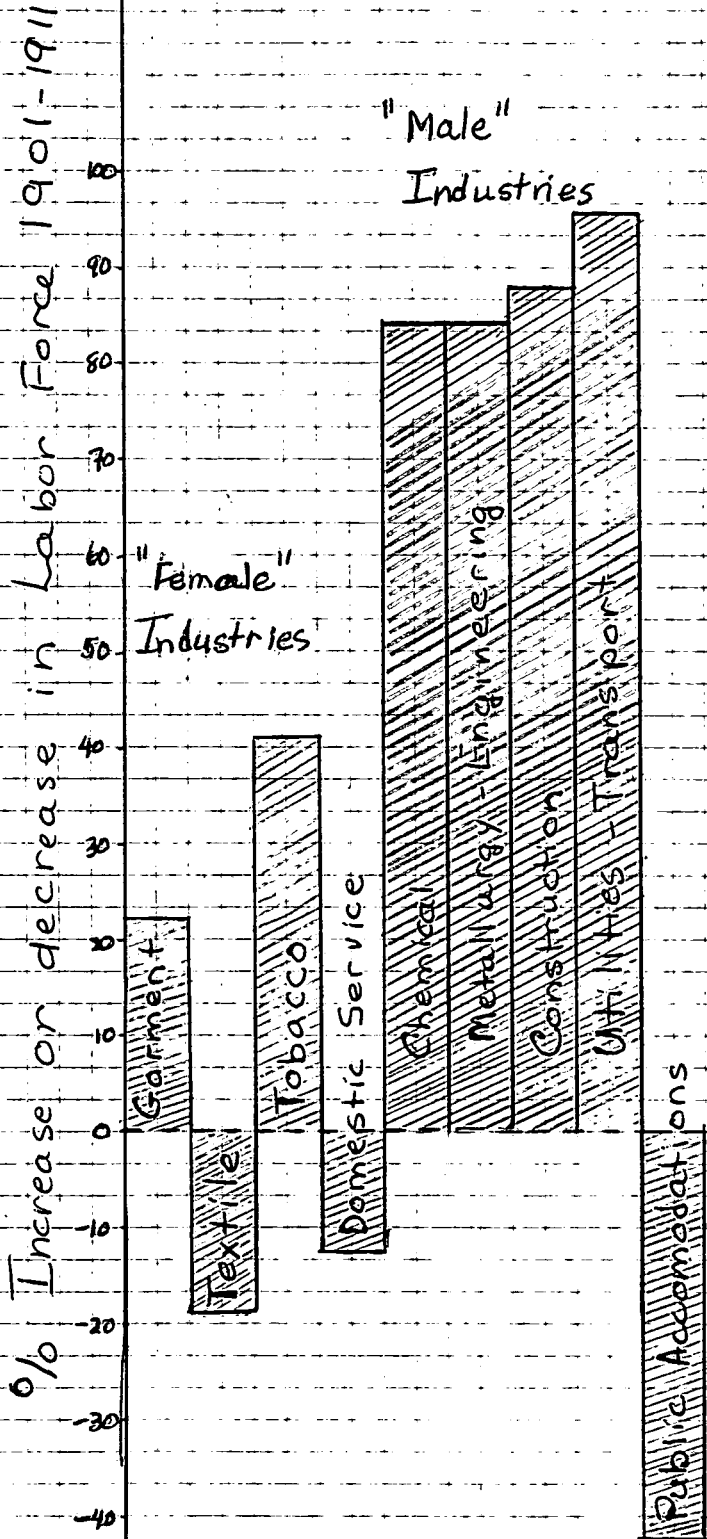 % Increase or decrease in Labor Force 1901-1911
100
90
80
70
60
50
40
30
20
10
0
-10
-20
-30
-40
"Female"
Industries
"Male"
Industries
Garment
Textile
Tobacco
Domestic Service
Chemical
Metallurgy - Engineering
Construction
Utilities - Transport
Public Accomodations